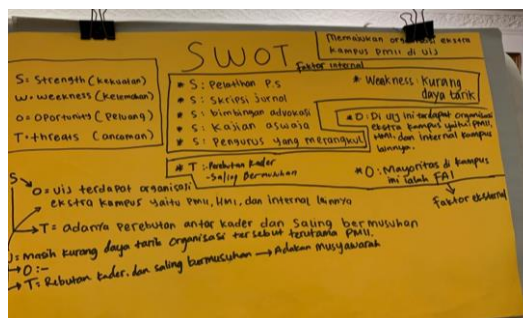 Memasukan organisasi ekstra
kampus pmii di uij
SWOT
faktor internal
S = Strength (kekuatan)
W = Weekness (kelemahan)
O = Oportunity (Peluang)
T = threats (ancaman)
* S : Pelatihan P.S
* S : Skripsi Jurnal
* S : bimbingan advokasi
* S : Kajian aswaja
* S : Pengurus yang merangkul
* Weakness : Kurang
daya tarik
* O : Di uij ini terdapat organisasi
ekstra kampus yaitu PMII,
HMI, dan Internal kampus
lainnya.
* T : Perebutan Kader
- Saling Bermusuhan
* O : Mayoritas di kampus
ini ialah FAI
faktor eksternal
S
O = uij terdapat organisasi
ekstra kampus yaitu PMII, HMI, dan internal lainnya
T = adanya Perebutan antar kader dan Saling bermusuhan
W = masih kurang daya tarik organisasi tersebut terutama PMII.
O : -
T : Rebutan kader, dan saling bermusuhan → Adakan musyawarah